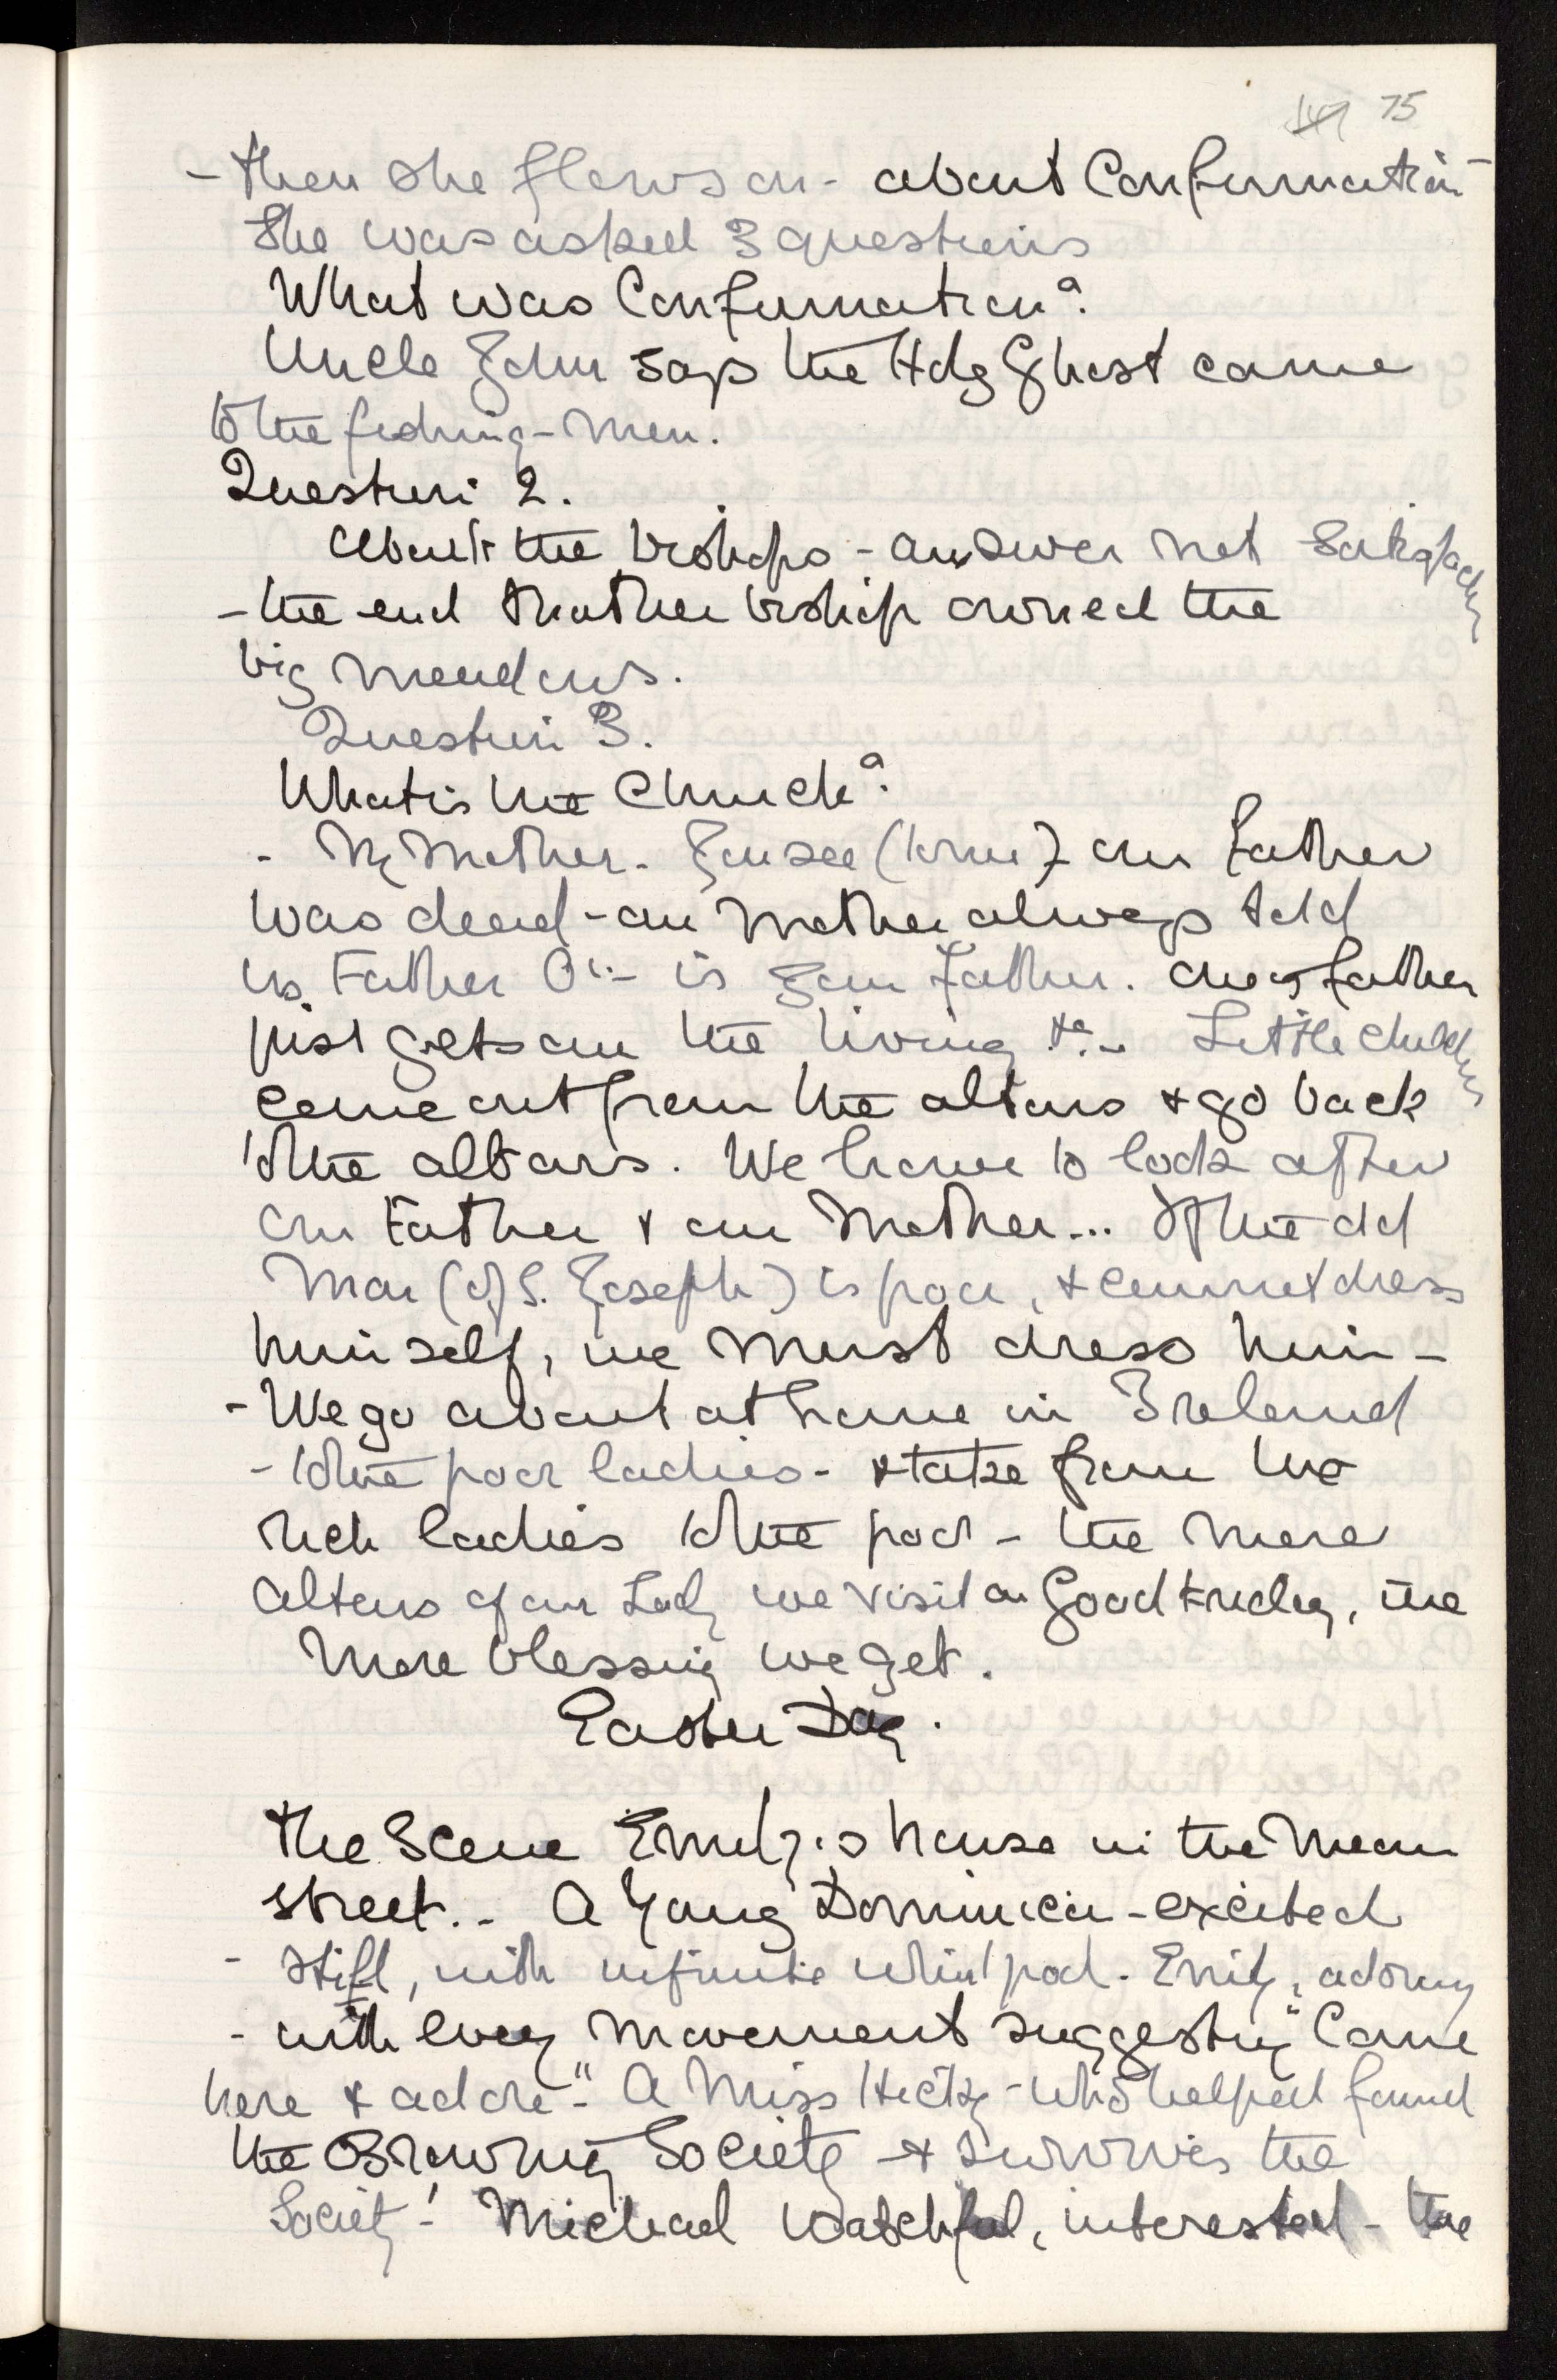 75
- then she flows on - about Confirmation -
She was asked 3 questions
What was Confirmation?
Uncle John says the Holy Ghost came
to the fishing-men.
Question 2.
About the bishops - answer not satisfactory
- the end that the bishop owned the
big meadows.
Question 3.
What is the Church?
- My Mother. You see (          ) our Father
was dead - our Mother always told
us Father O'- is your Father. Our Father
just gets our the living &. - Little children
come out from the altars & go back
to the altars. We have to look after
our Father & our Mother... If the old
Man (of S. Joseph) is poor, & cannot dress
himself, we must dress him -
- We go about at home in Ireland
- to the poor ladies - & take from the
rich ladies to the poor - the more
altars of our Lady we visit on Good Friday, the
more blessing we get.
Easter Day.
The Scene Emily's house in the mean
street. - A young Dominican - excited
- stiff, with infinite whirlpool - Emily, adoring
- with every movement suggesting "Come
here & adore -" A Miss Hickey - who helped found
the Browning Society - & survives the
Society! Michael watchful, interested - the